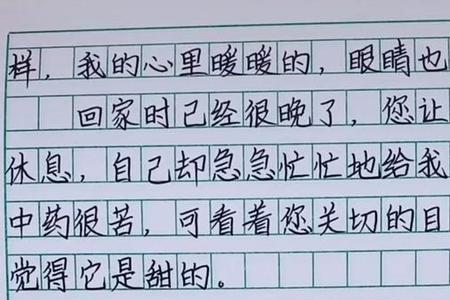 样，我的心里暖暖的，眼睛也
回家时已经很晚了，您让
休息，自己却急急忙忙地给我
中药很苦，可看着您关切的目
觉得它是甜的。